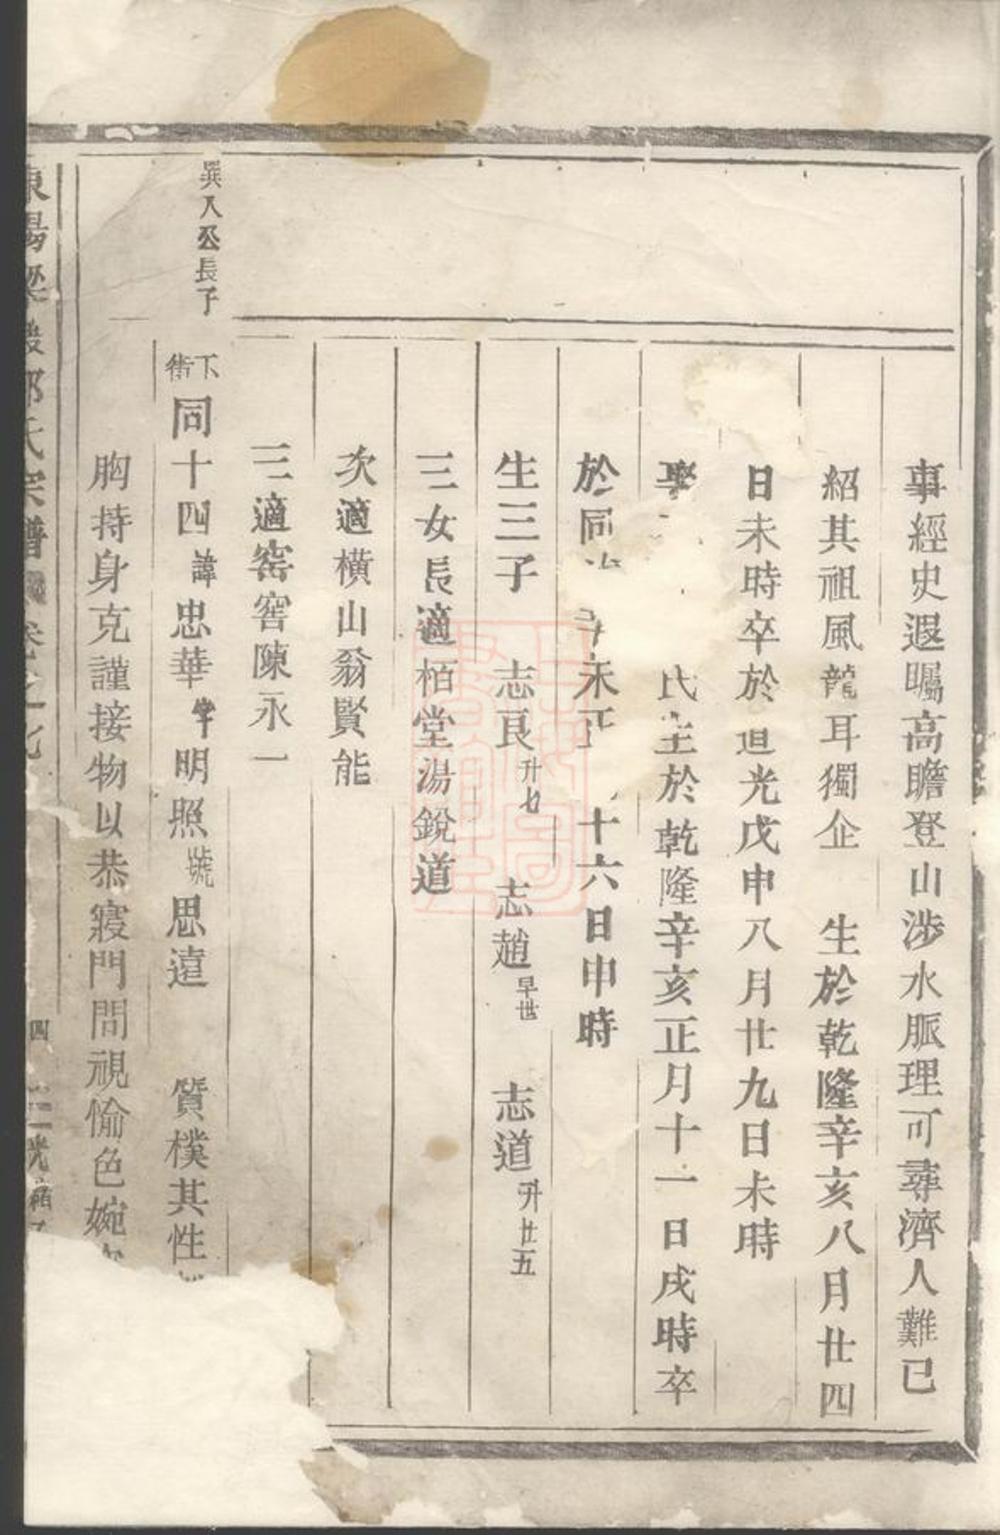 事經史遐矚高瞻登山涉水脈理可尋濟人難已
紹其祖風龍耳獨企 生於乾隆辛亥八月廿四
日未時卒於道光戊申八月廿九日未時
娶 氏生於乾隆辛亥正月十一日戌時卒
於同治 未正 十六日申時
生三子 志良升七 志趙早世 志道升廿五
三女長適栢堂湯銳道
次適橫山翁賢能
三適窖窖陳永一
撰人公長子
下街同十四諱忠華字明照號思遠 質樸其性
胸持身克謹接物以恭寢門問視愉色婉
東陽梁 氏宗譜 卷之 四